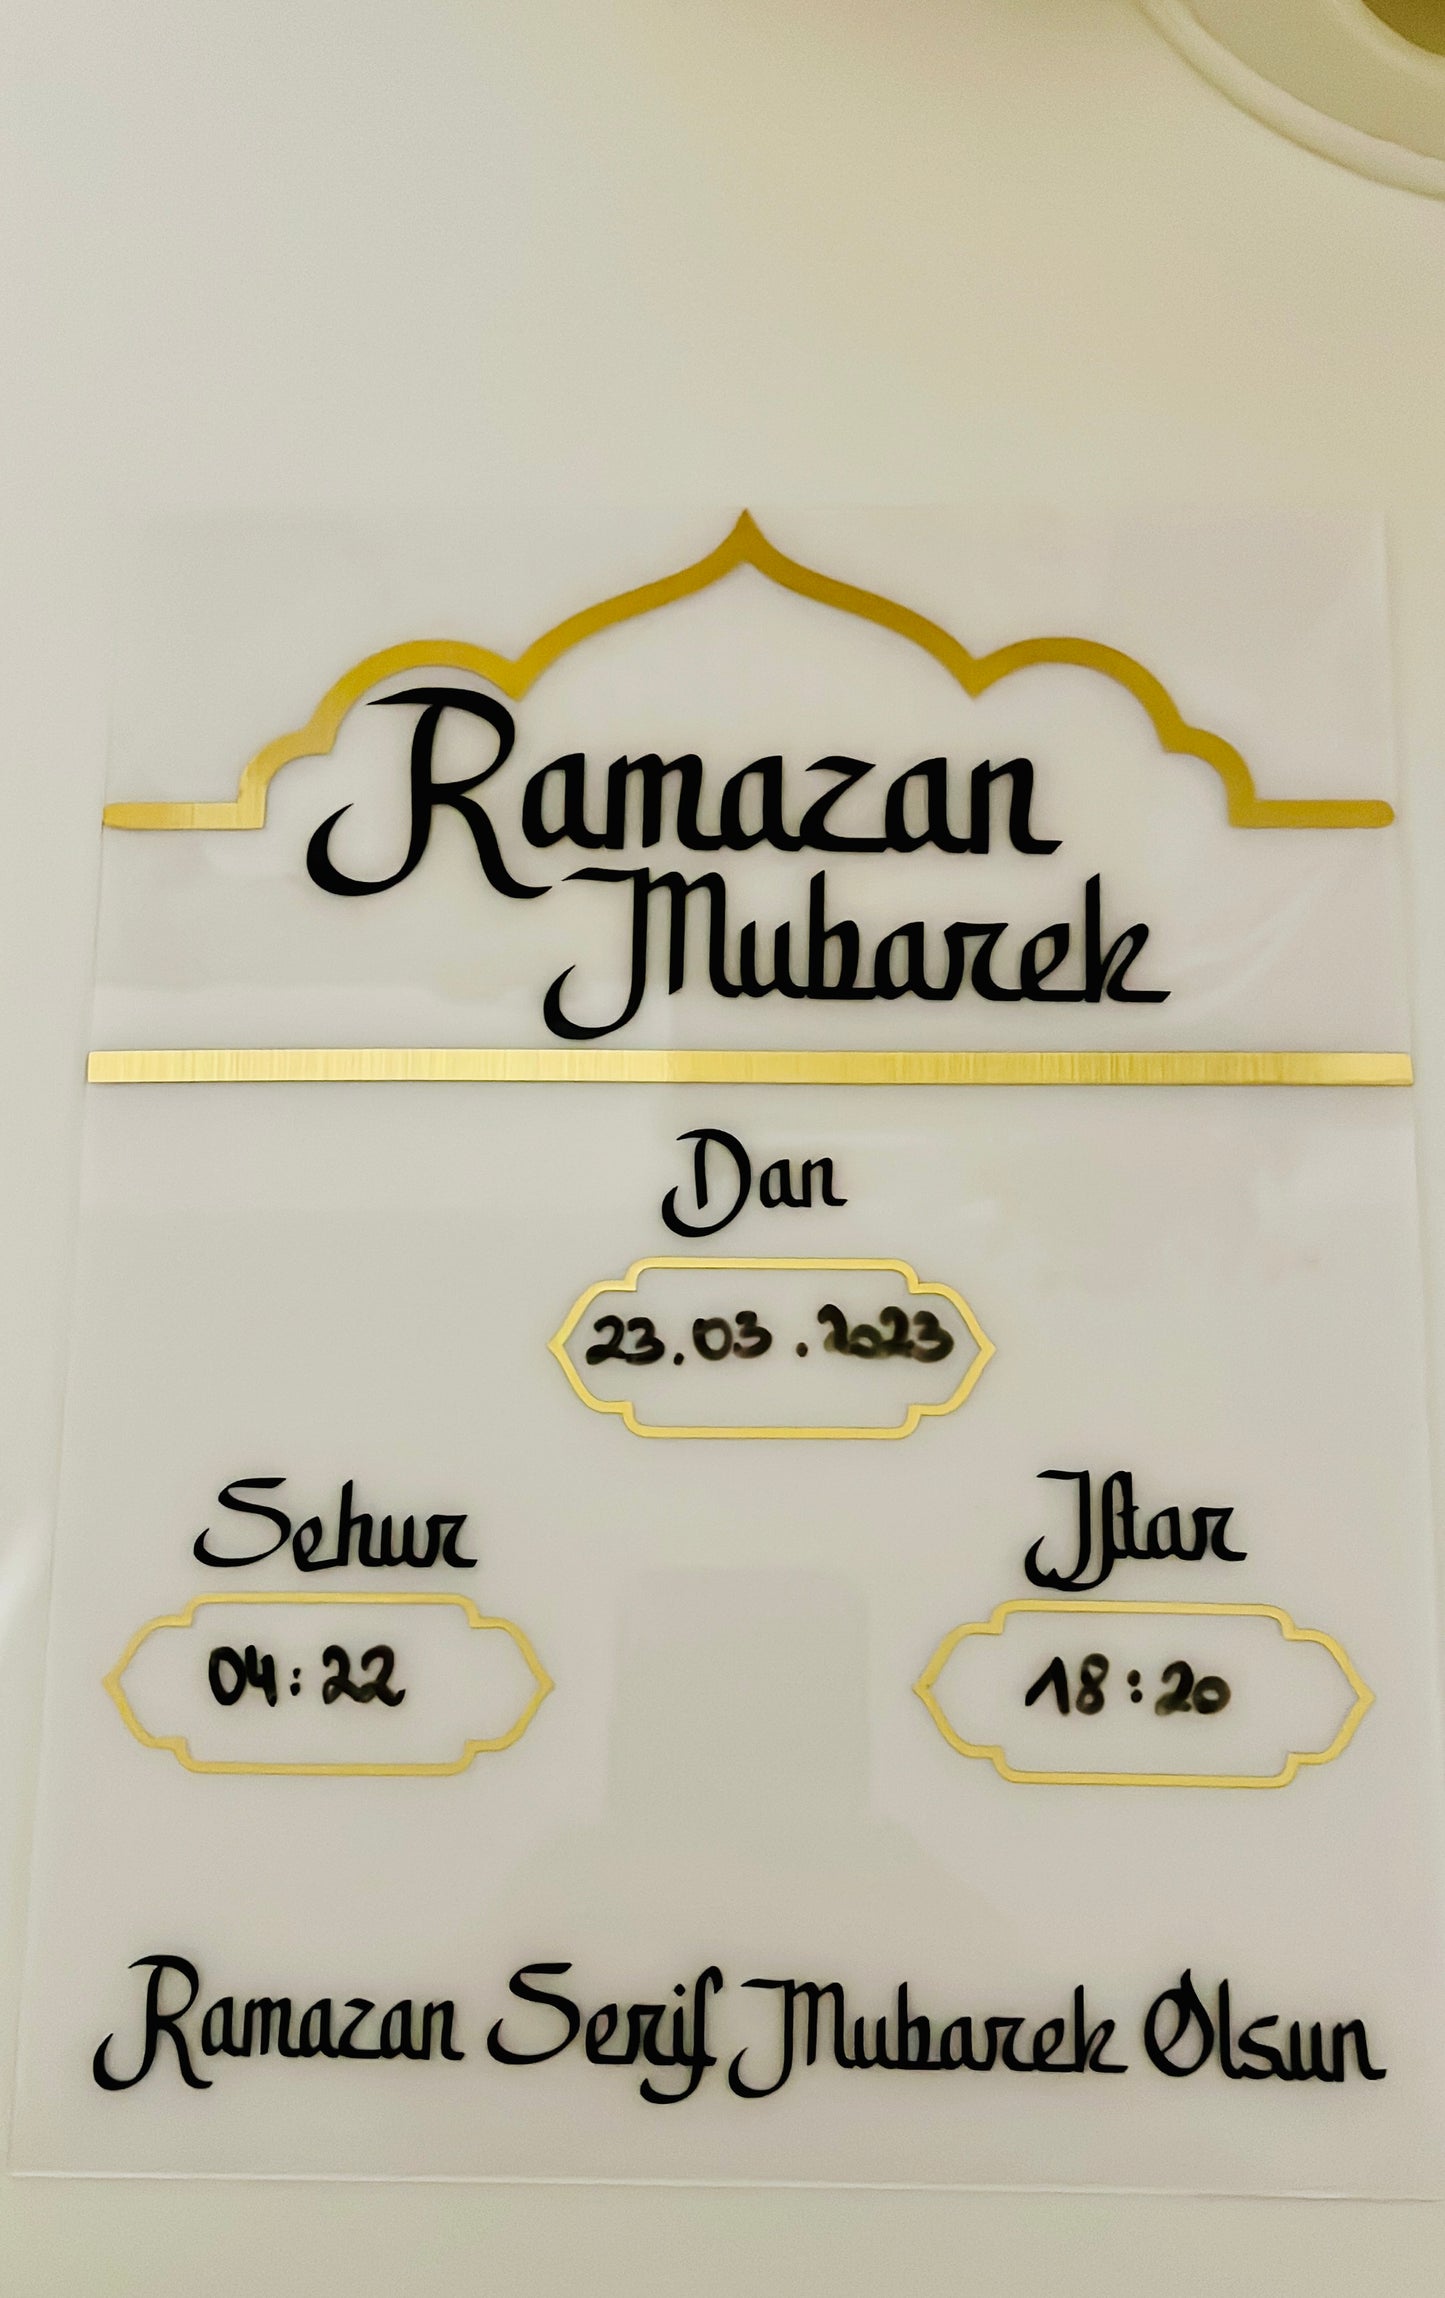 Ramazan
Mubarek
Dan
23.03.2023
Sehur
Iftar
04:22
18:20
Ramazan Serif Mubarek Olsun